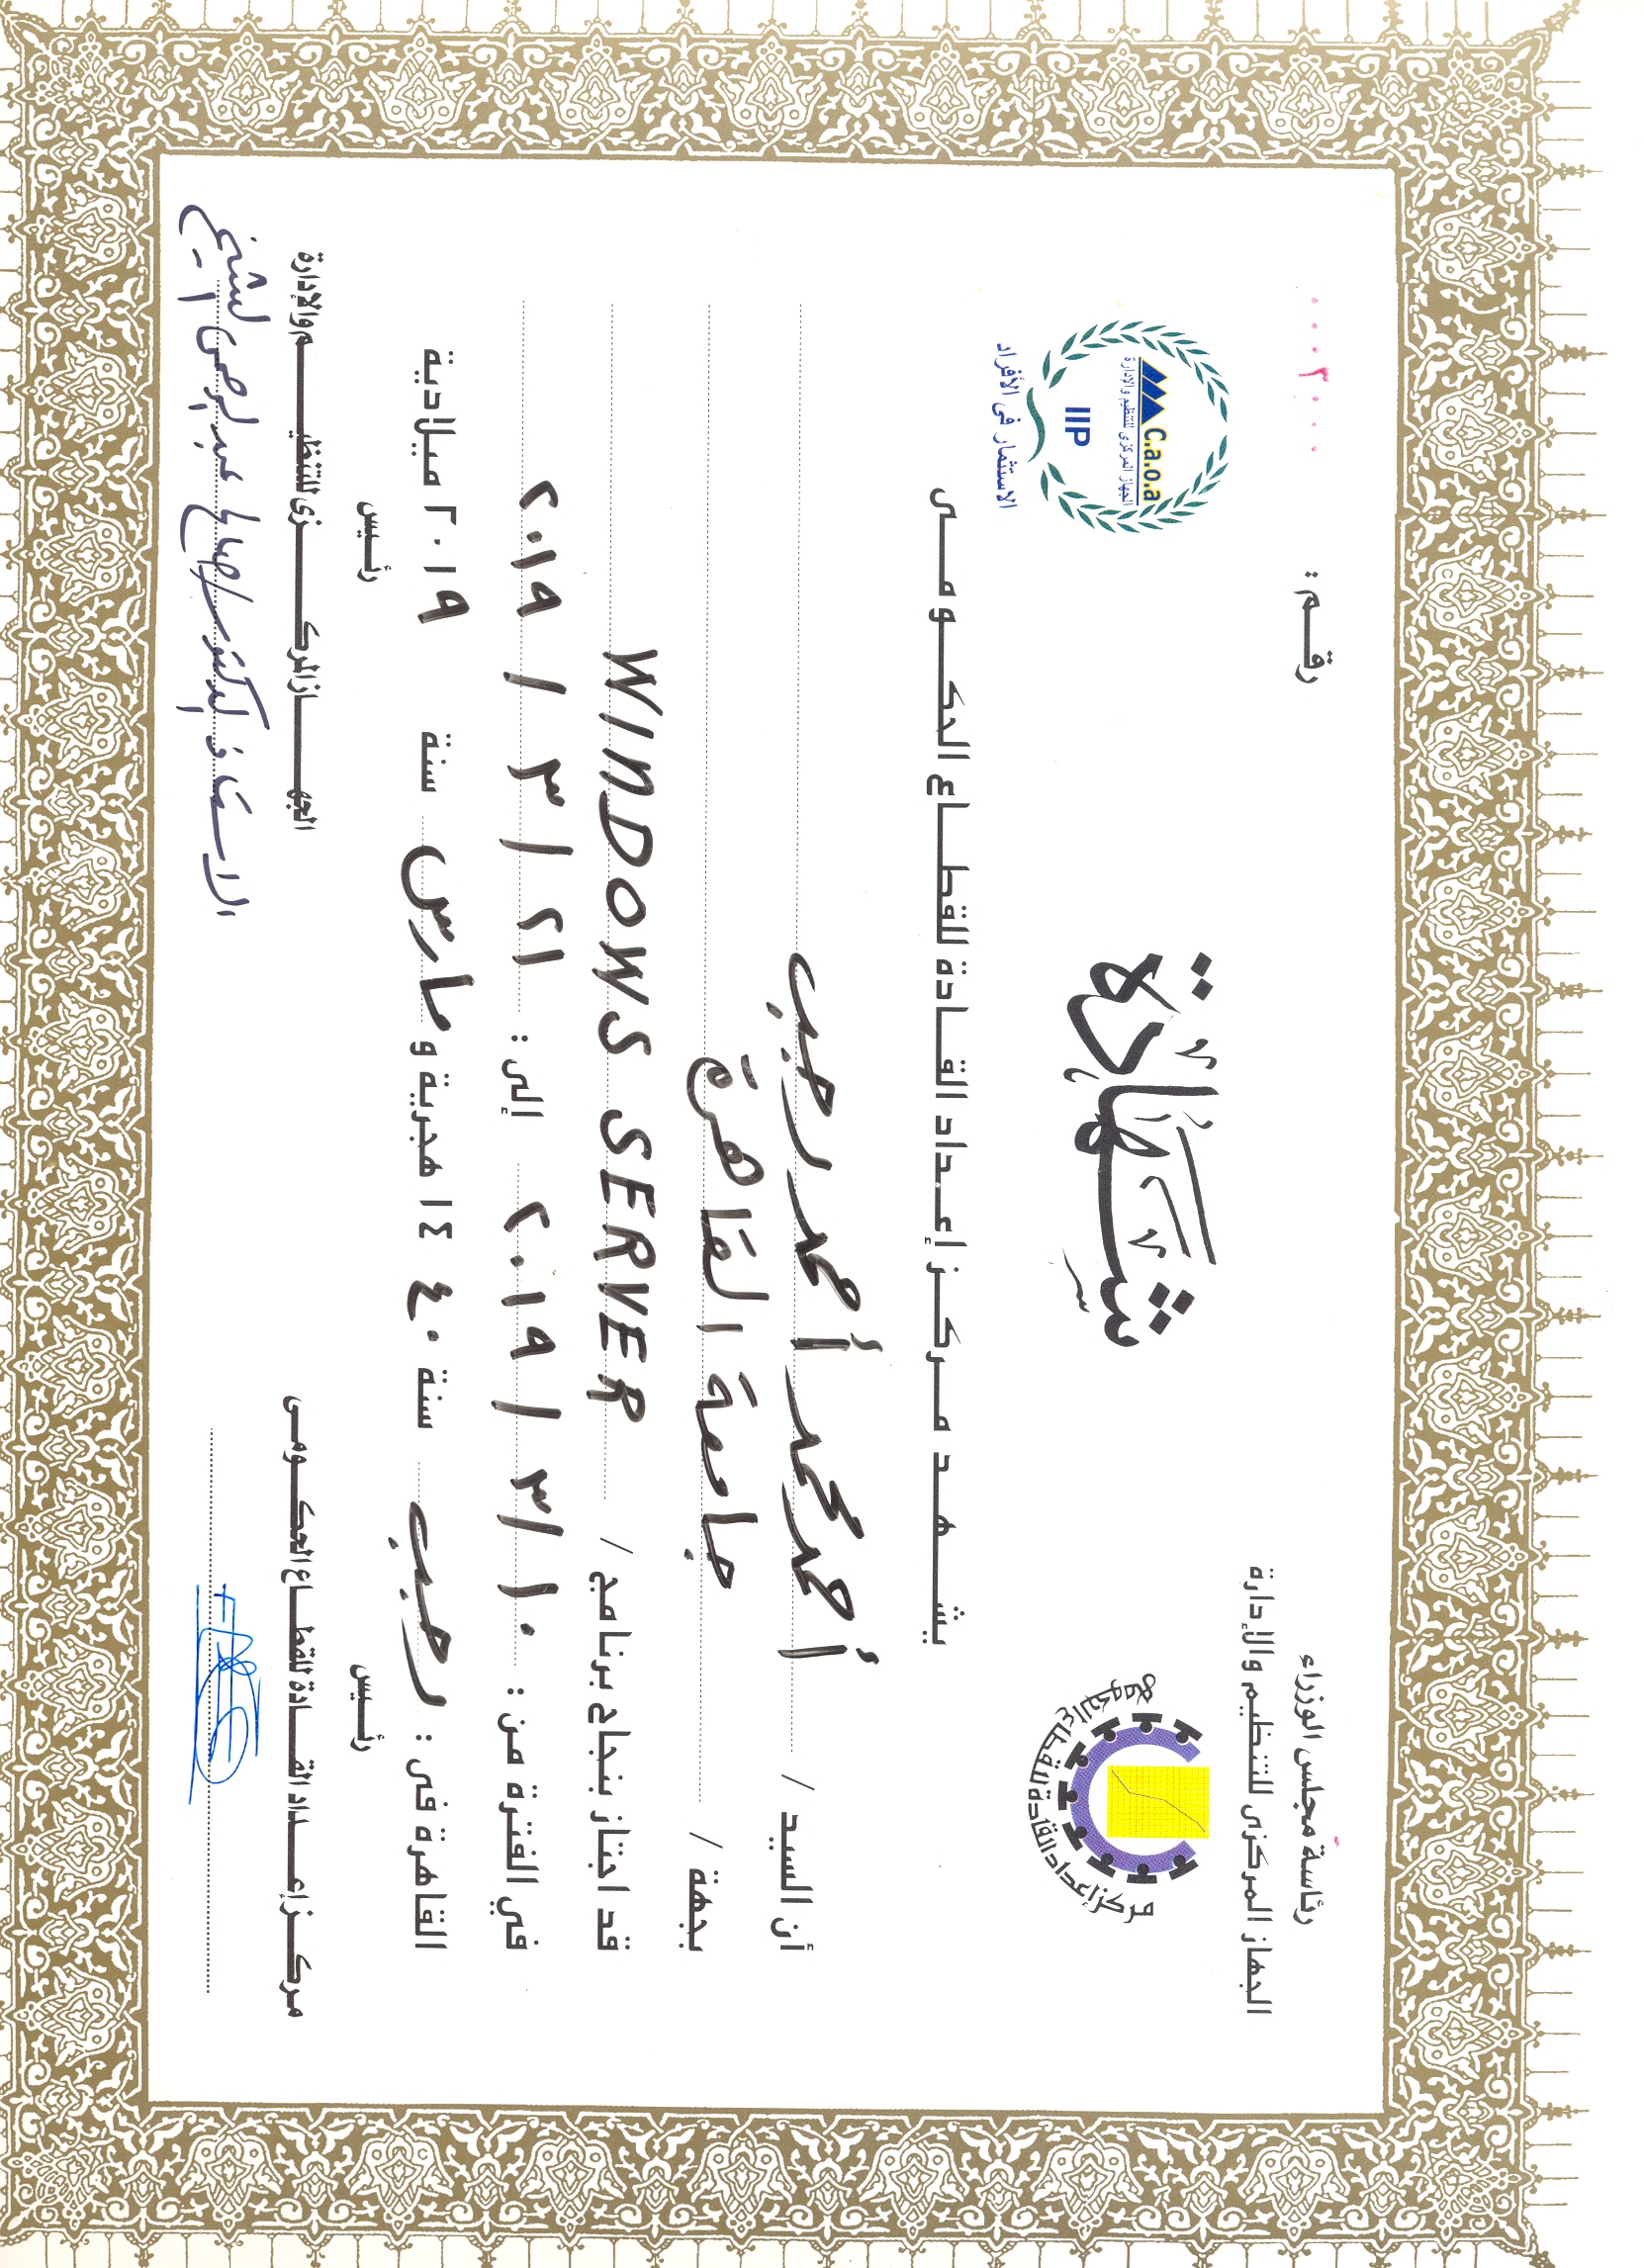 رئاسة مجلس الوزراء
الجهاز المركزى للتنظيم والإدارة
مركز إعداد القادة للقطاع الحكومى
رقم : ٠٠٠٣٠٠٠
C.a.o.a
الجهاز المركزى للتنظيم والإدارة
IIP
الاستثمار فى الأفراد
شهادة
يشهد مركز إعداد القادة للقطاع الحكومى
أن السيد / أحمد محمد أحمد رجب
بجهة / جامعة القاهرة
قد اجتاز بنجاح برنامج / WINDOWS SERVER
في الفترة من : ١٠ / ٣ / ٢٠١٩ إلى : ٢١ / ٣ / ٢٠١٩
القاهرة فى : رجب سنة ١٤٤٠ هجرية و مارس سنة ٢٠١٩ ميلادية
رئيس
مركز إعداد القادة للقطاع الحكومى
رئيس
الجهاز المركزى للتنظيم والإدارة
الاستاذ الدكتور / صالح عبد الرحمن الشيخ